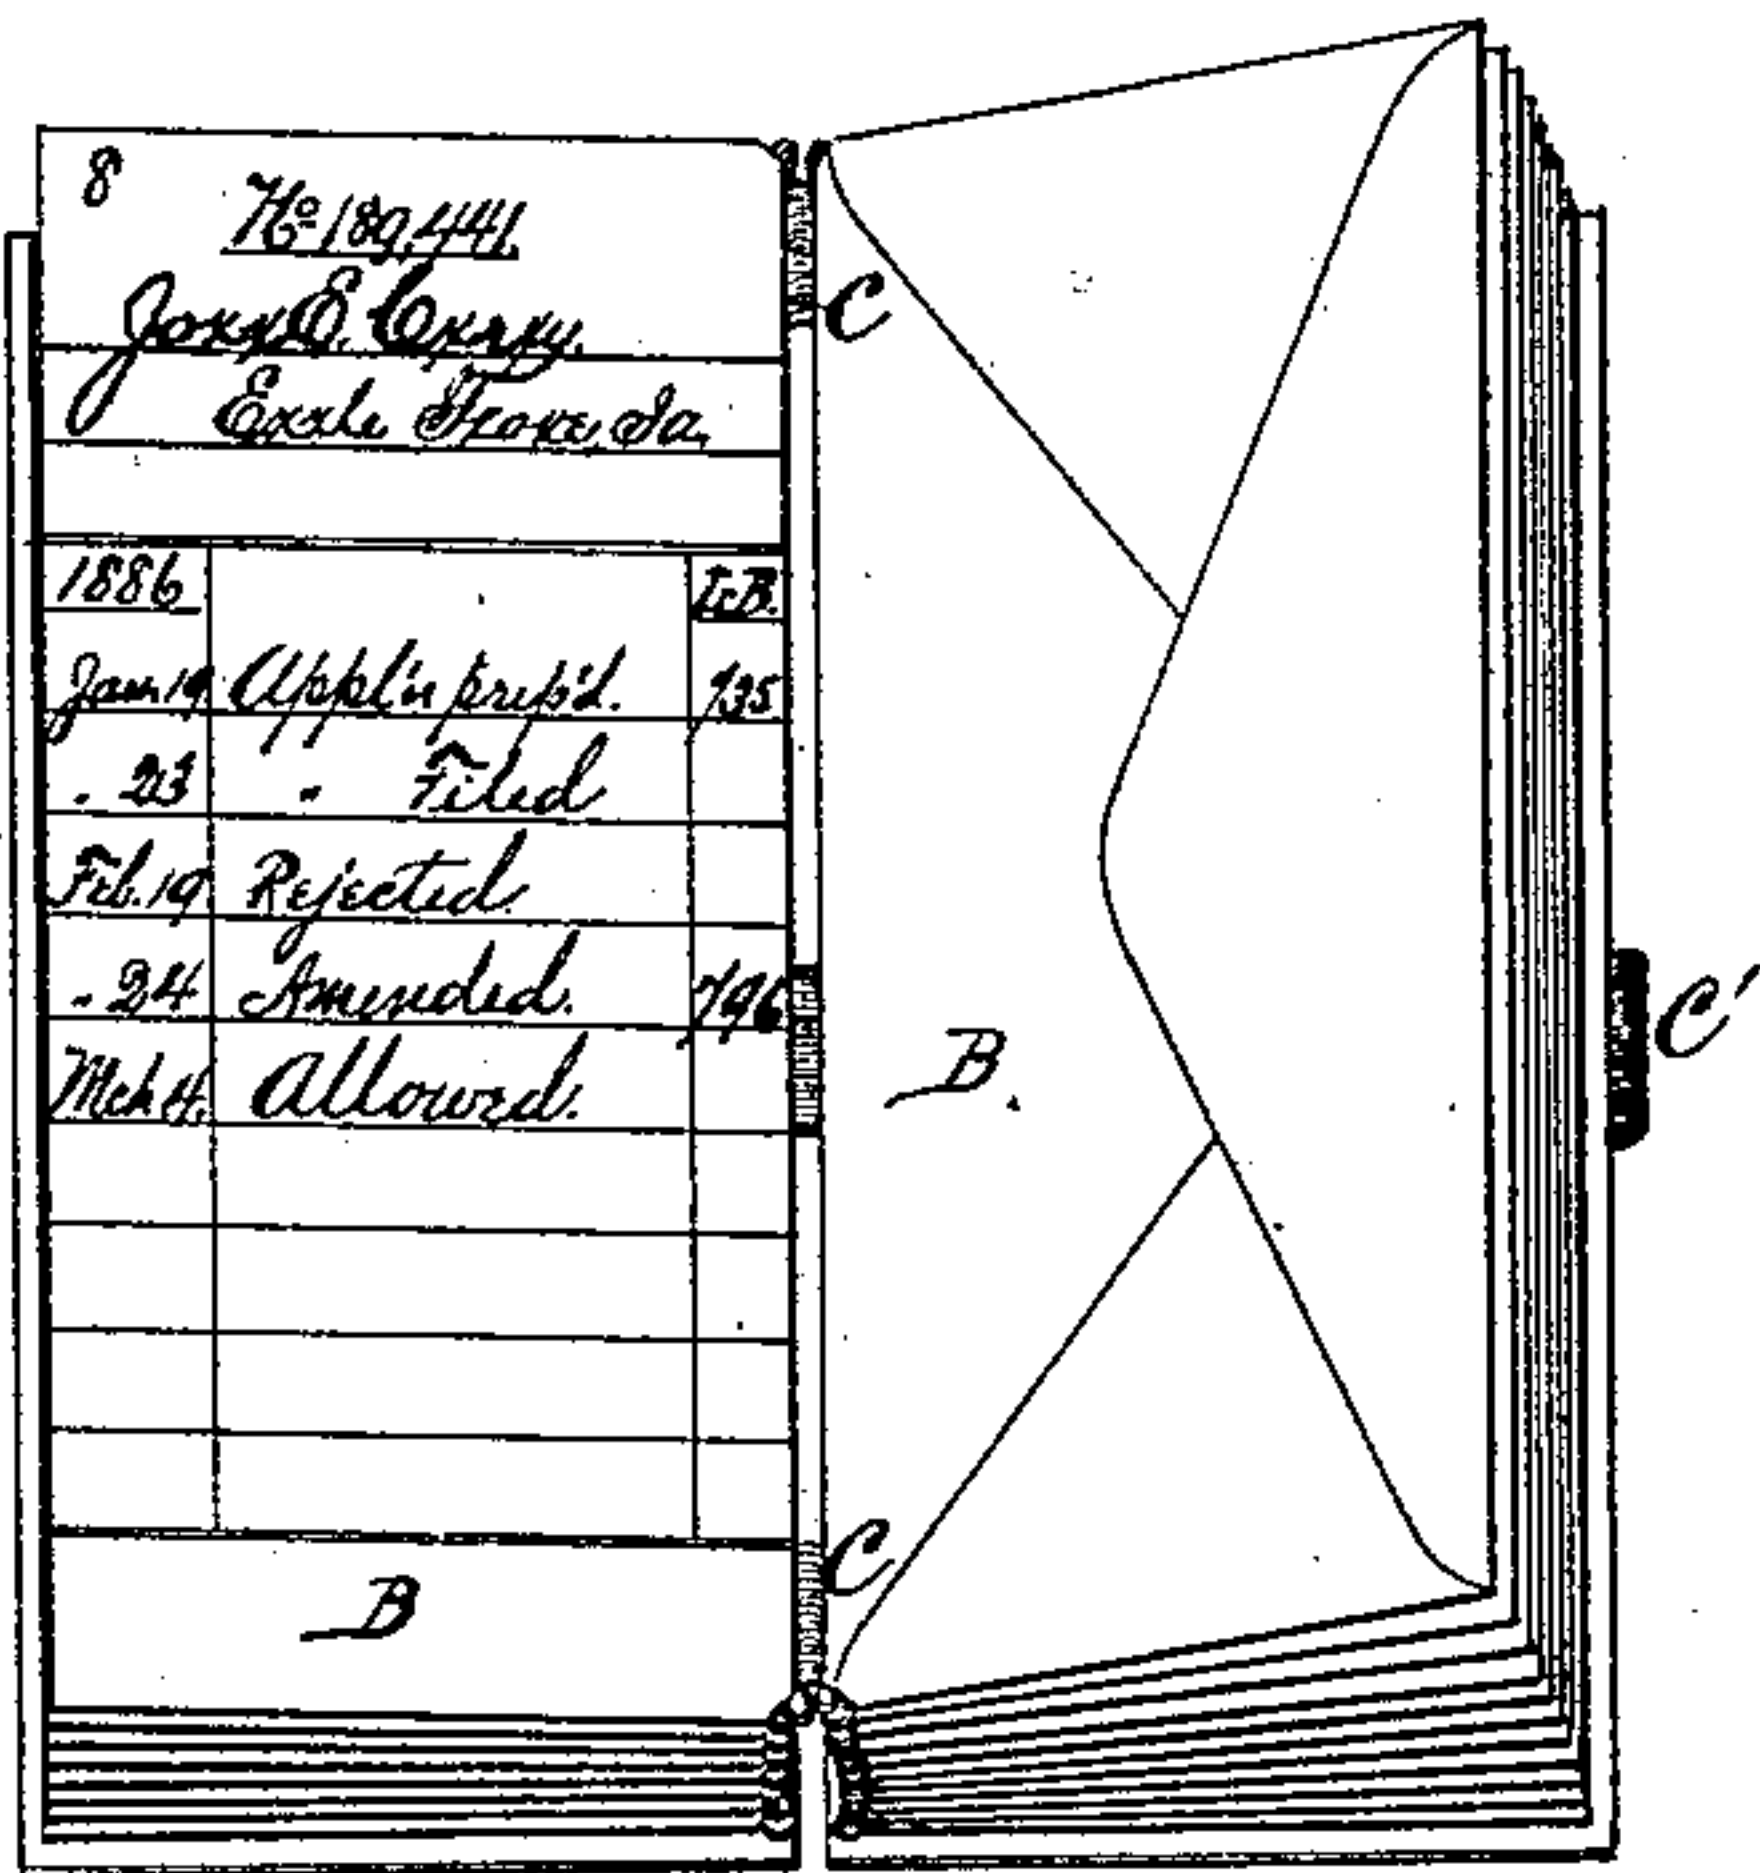 8
No 189,441.
E.
Ia.
1886 L.B.
Jan. 19 Appl'n prep'd. 735
" 23 " Filed
Feb. 19 Rejected.
" 24 Amended. 796
Mch 4. Allowed.
B
C
B.
C
C'